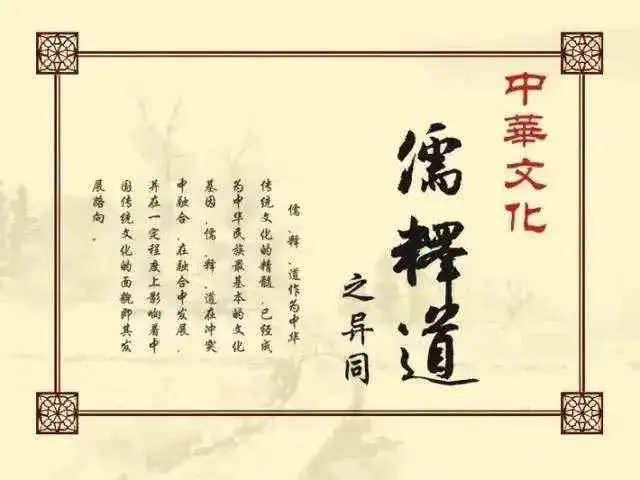 中華文化
儒釋道
之异同
儒、释、道作为中华
传统文化的精髓，已经成
为中华民族最基本的文化
基因，儒、释、道在冲突
中融合，在融合中发展，
并在一定程度上影响着中
国传统文化的面貌即其发
展路向。